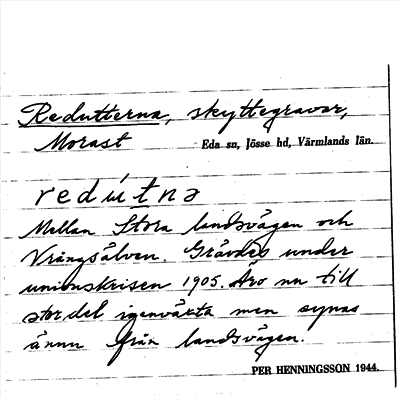 Redutterna, skyttegravar,
Morast
Eda sn, Jösse hd, Värmlands län.
redútnə
Mellan Stora landsvägen och
Vrångsälven. Grävdes under
unionskrisen 1905. Äro nu till
stor del igenväxta men synas
ännu från landsvägen.
PER HENNINGSSON 1944.